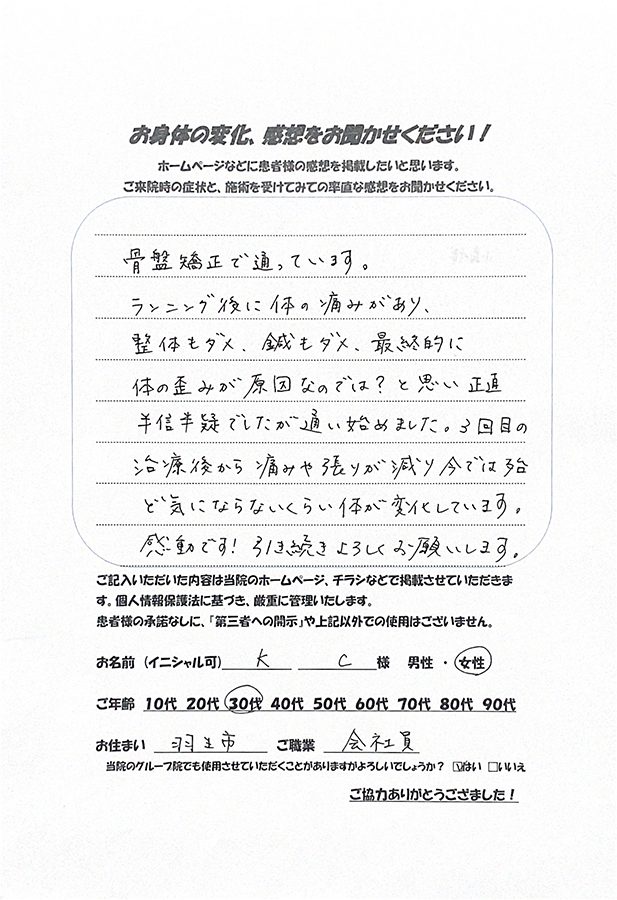 お身体の変化、感想をお聞かせください！
ホームページなどに患者様の感想を掲載したいと思います。
ご来院時の症状と、施術を受けてみての率直な感想をお聞かせください。
骨盤矯正で通っています。
ランニング後に体の痛みがあり、
整体もダメ、鍼もダメ、最終的に
体の歪みが原因なのでは？と思い正直
半信半疑でしたが通い始めました。3回目の
治療後から痛みや張りが減り今では殆
ど気にならないくらい体が変化しています。
感動です！引き続きよろしくお願いします。
ご記入いただいた内容は当院のホームページ、チラシなどで掲載させていただきま
す。個人情報保護法に基づき、厳重に管理いたします。
患者様の承諾なしに、「第三者への開示」や上記以外での使用はございません。
お名前（イニシャル可） K C 様 男性・女性
ご年齢 10代 20代 30代 40代 50代 60代 70代 80代 90代
お住まい 羽生市 ご職業 会社員
当院のグループ院でも使用させていただくことがありますがよろしいでしょうか？ ☑はい □いいえ
ご協力ありがとうござました！